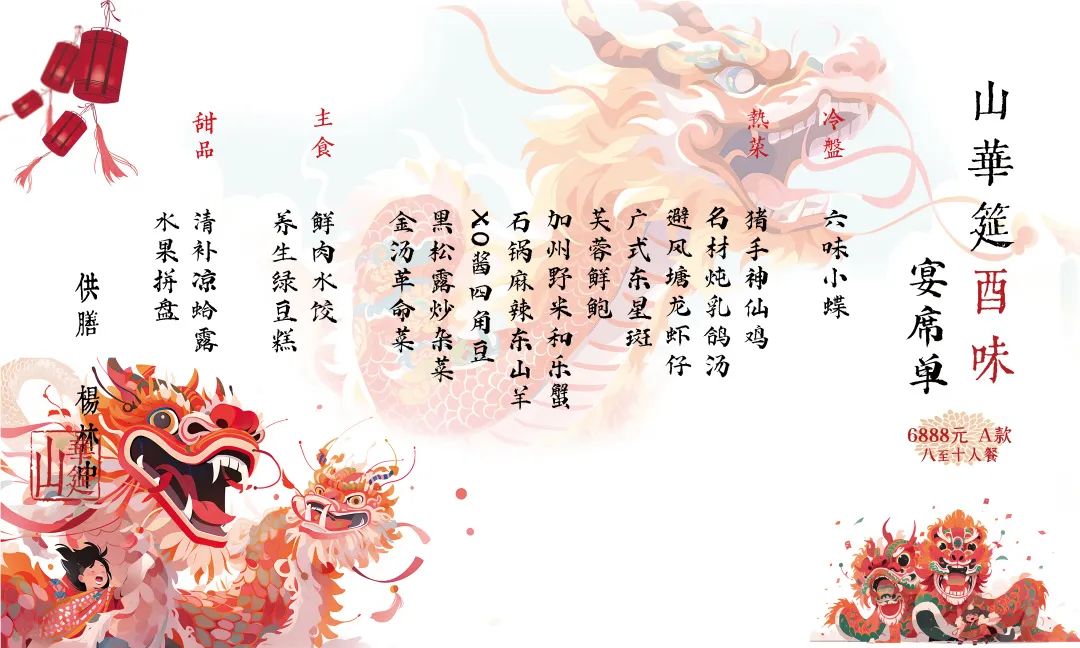 山華筵酉味
宴席单
6888元 A款
八至十人餐
冷盤
六味小蝶
熱菜
猪手神仙鸡
名材炖乳鸽汤
避风塘龙虾仔
广式东星斑
芙蓉鲜鲍
加州野米和乐蟹
石锅麻辣东山羊
XO酱四角豆
黑松露炒杂菜
金汤革命菜
主食
鲜肉水饺
养生绿豆糕
甜品
清补凉蛤露
水果拼盘
供膳 楊林冲
山華筵